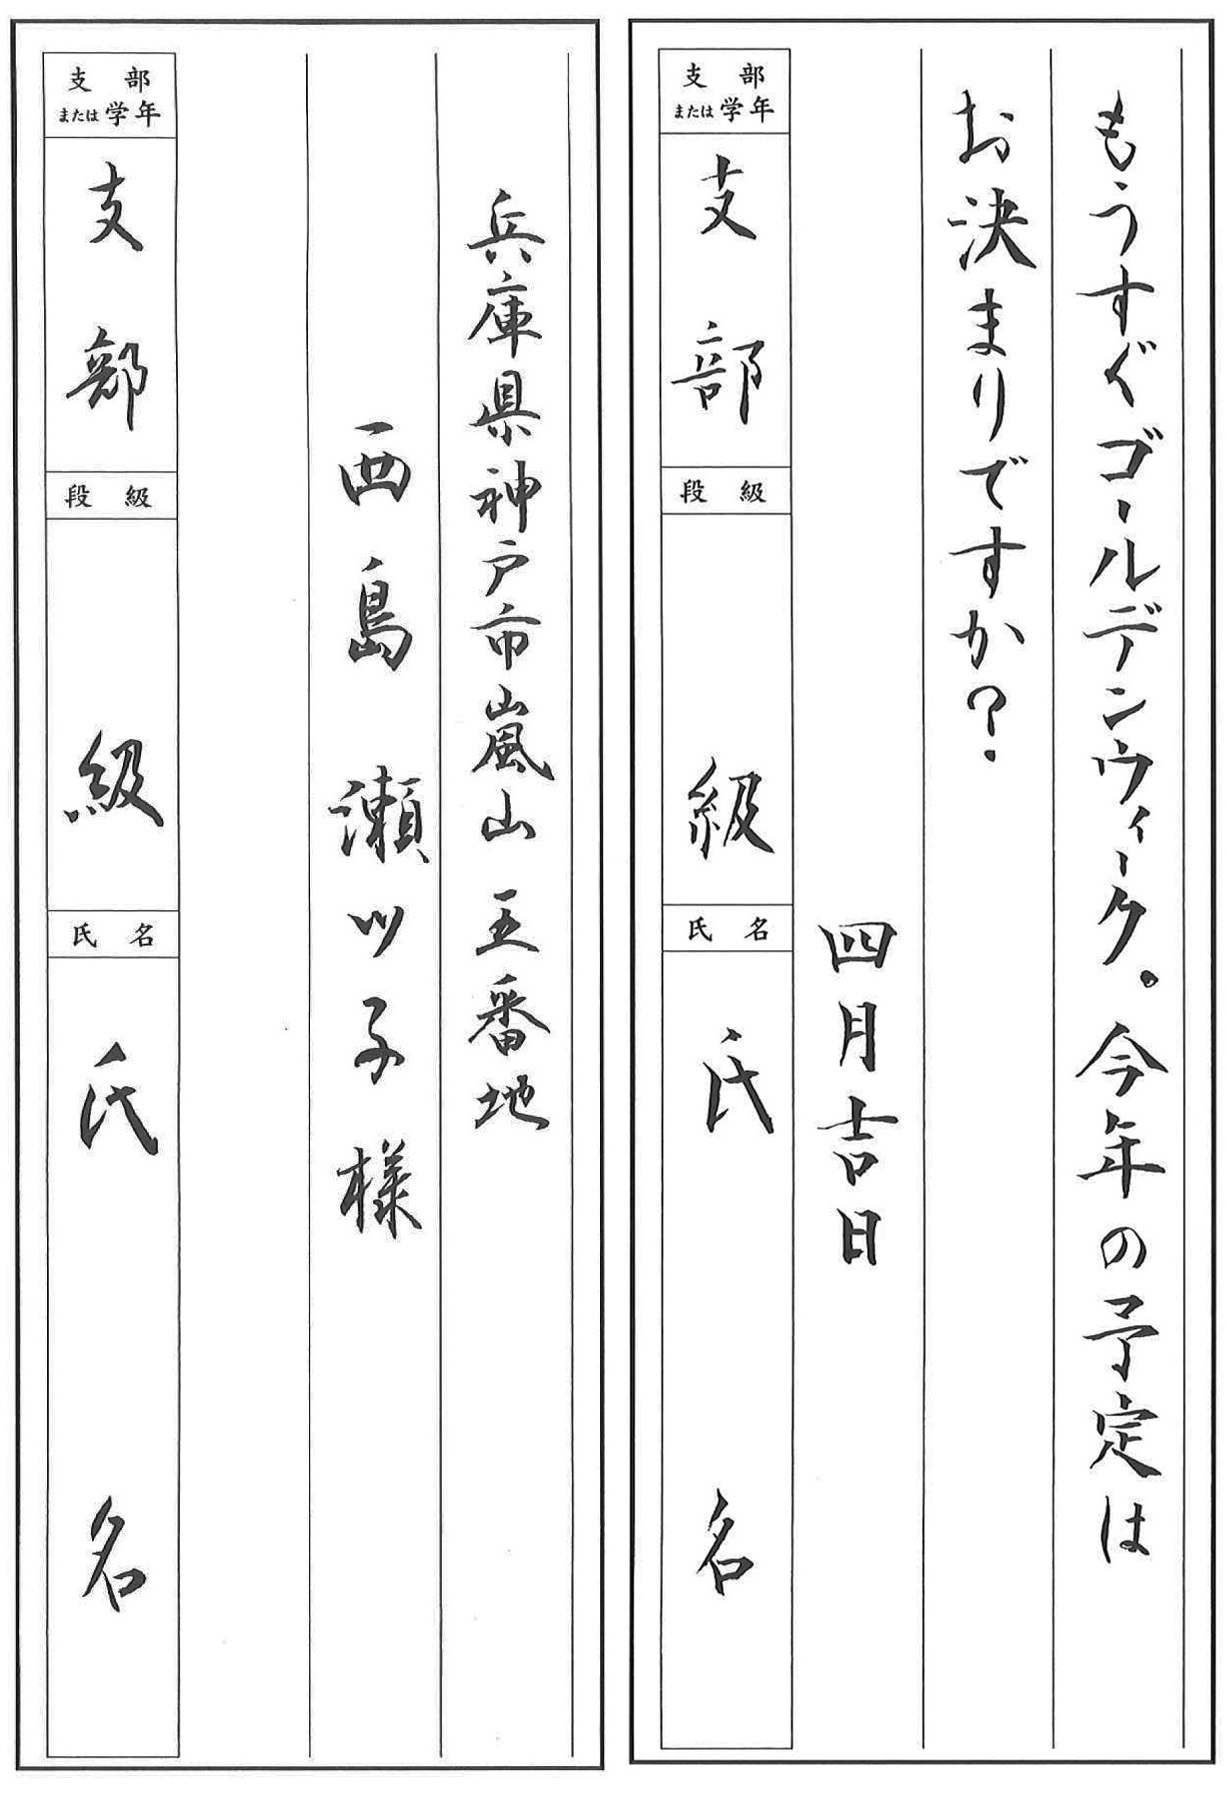 もうすぐゴールデンウィーク。今年の予定は
お決まりですか?
四月吉日
支部
または学年
支部
段級
級
氏名
氏名
兵庫県神戸市嵐山 五番地
西島 瀬ツ子様
支部
または学年
支部
段級
級
氏名
氏名